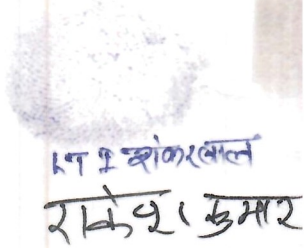 LTI शंकरलाल
राकेश कुमार